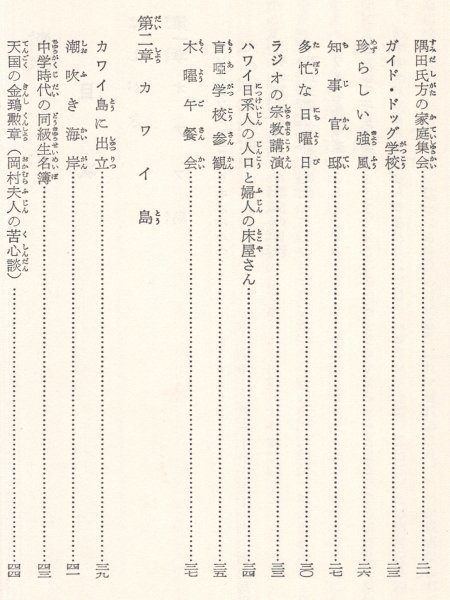 隅田氏方の家庭集会……二一
ガイド・ドッグ学校……二三
珍らしい強風……二六
知事官邸……二七
多忙な日曜日……三〇
ラジオの宗教講演……三三
ハワイ日系人の人口と婦人の床屋さん……三四
盲唖学校参観……三五
木曜午餐会……三七
第二章 カワイ島
カワイ島に出立……三九
潮吹き海岸……四一
中学時代の同級生名簿……四三
天国の金鵄勲章（岡村夫人の苦心談）……四四